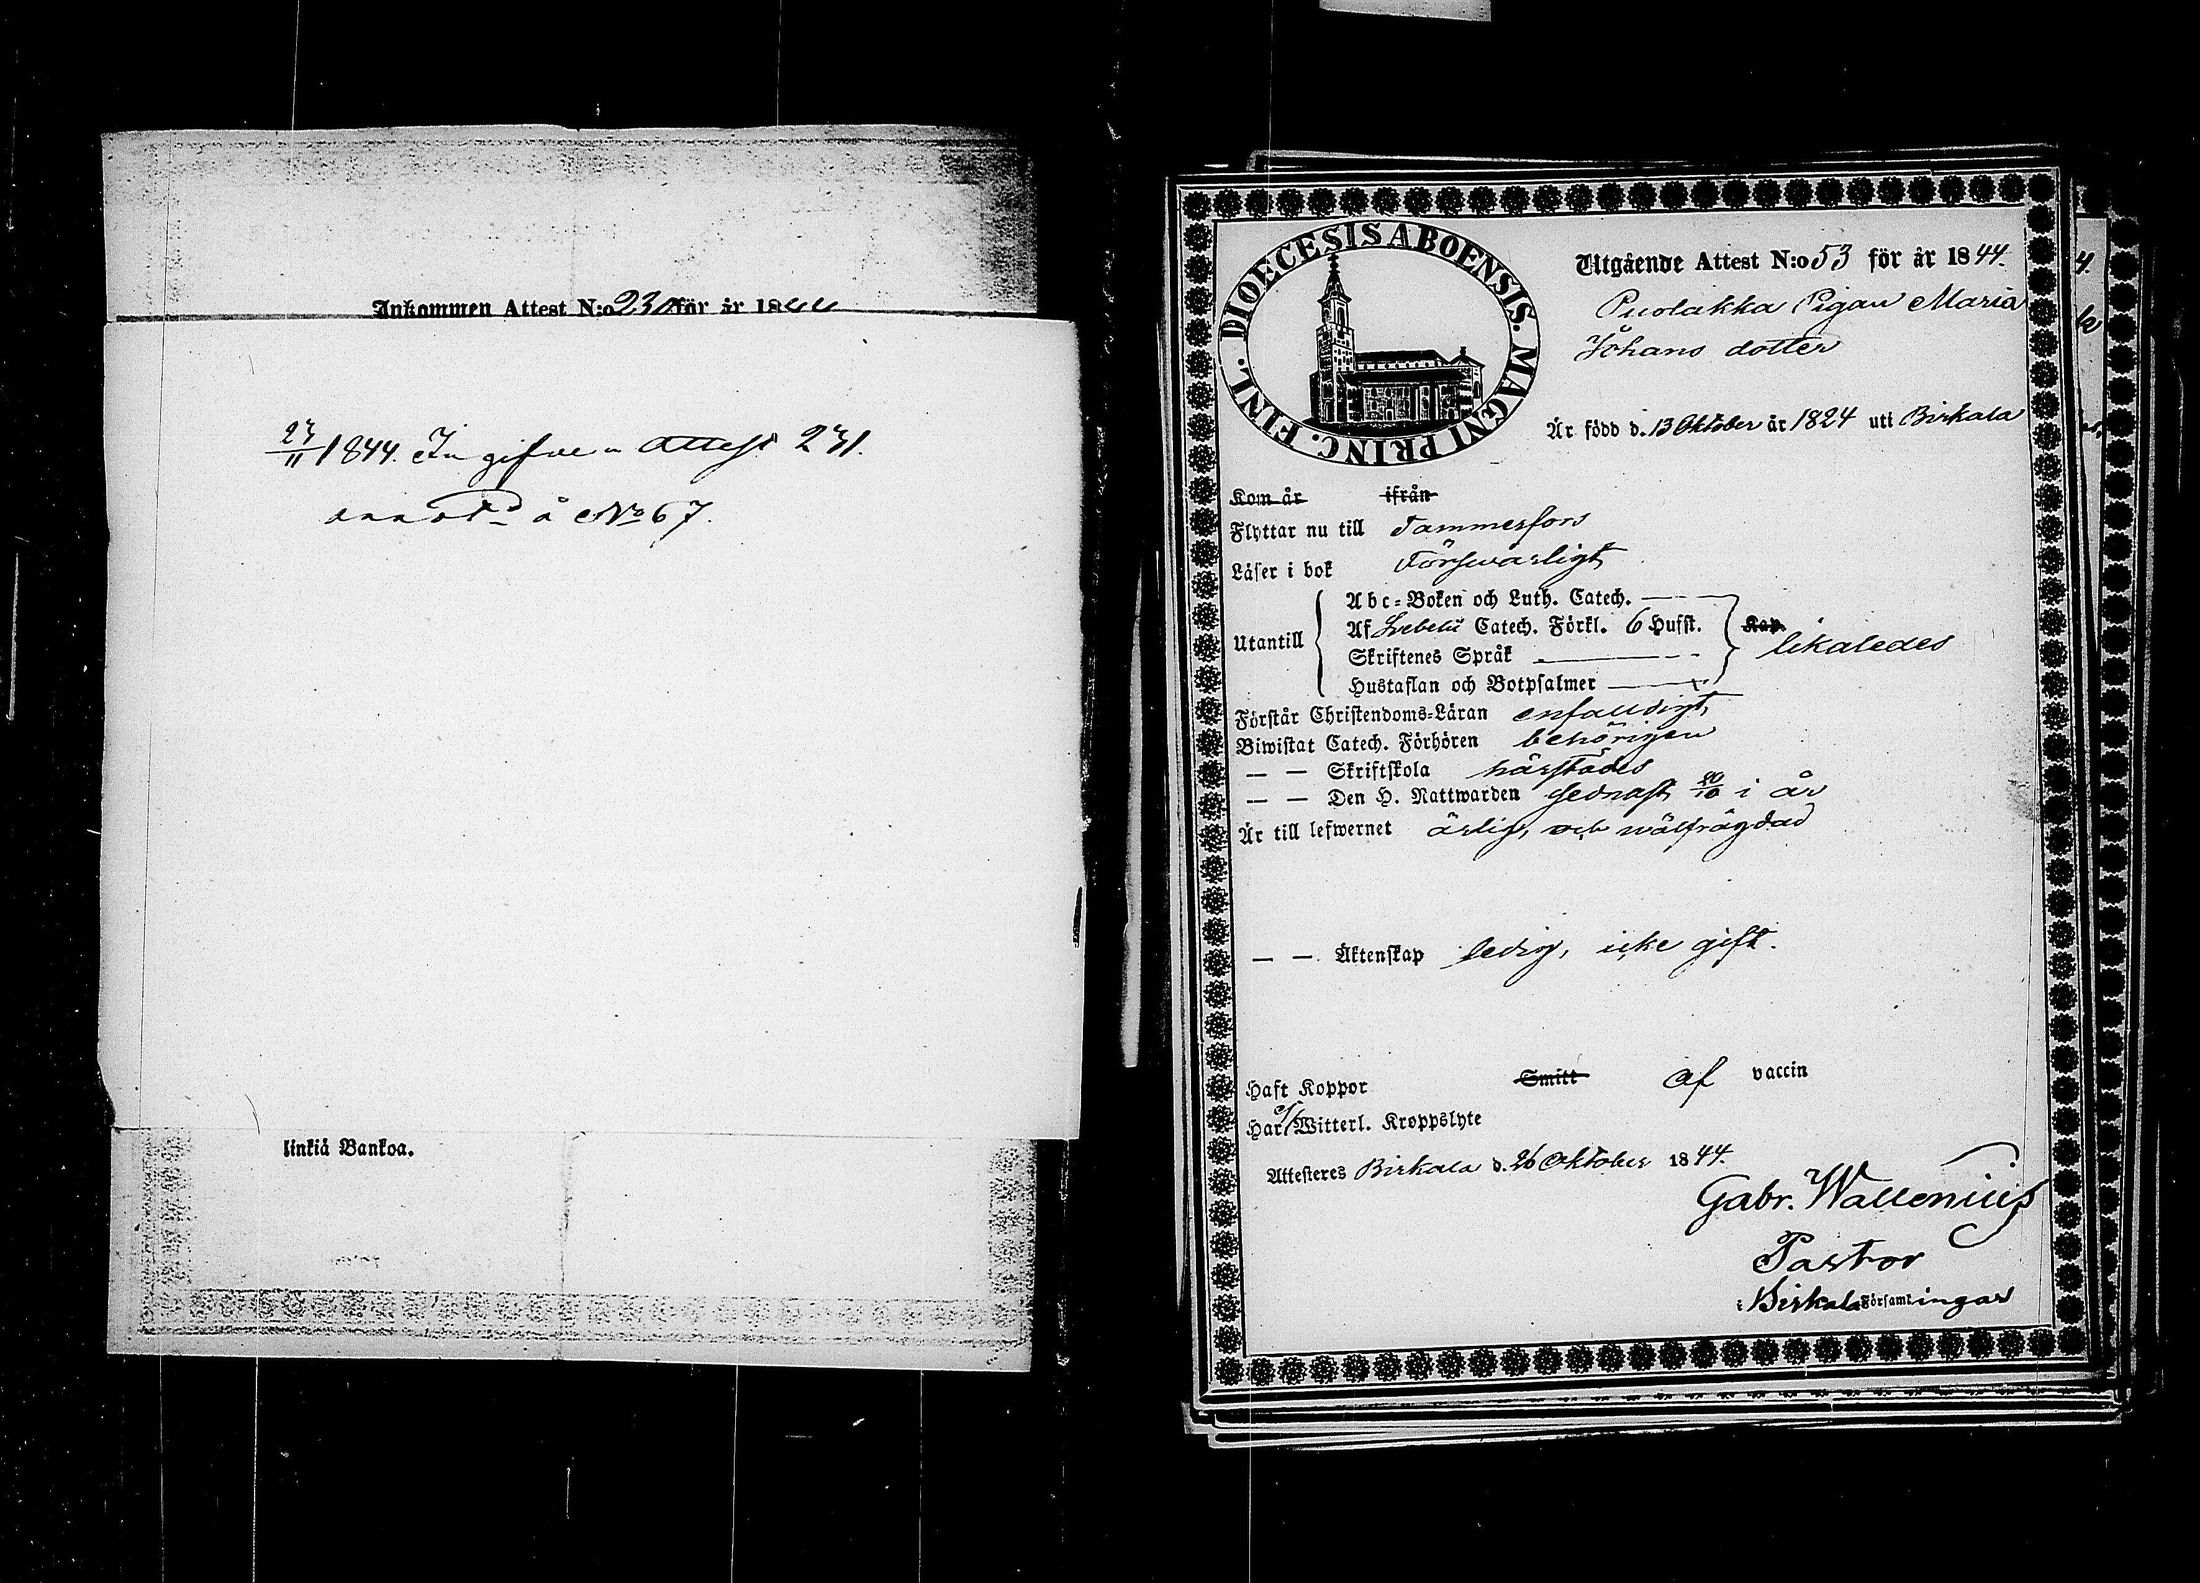 Inkommen Attest N:o 230 för år 1844
23/11 1844. In gifven Attest 231.
annot:d å No 67.
linkiä Bankoa.
DIOECESIS ABOENSIS. MAGNI PRINC. FINL.
Utgående Attest N:o 53 för år 1844.
Puolakka Pigan Maria
Johans dotter
Är född d. 13 Oktober år 1824 uti Birkala
Kom år ifrån
Flyttar nu till Tammerfors
Läser i bok Försvarligt
Abc-Boken och Luth. Catech. —
Utantill Af Svebelii Catech. Förkl. 6 Hufst. Kap. likaledes
Skriftenes Språk —
Hustaflan och Botpsalmer —
Förstår Christendoms-Läran enfaldigt
Biwistat Catech. Förhören behörigen
— — Skriftskola härstädes
— — Den H. Nattwarden sednast 20/10 i år
Är till lefwernet ärlig, och wälfrägdad
— — Äktenskap ledig, icke gift.
Haft Koppor Smitt af vaccin
Har Witterl. Kroppslyte
Attesteres Birkala d. 26 Oktober 1844.
Gabr. Wallenius
Pastor
i Birkala Församlingar